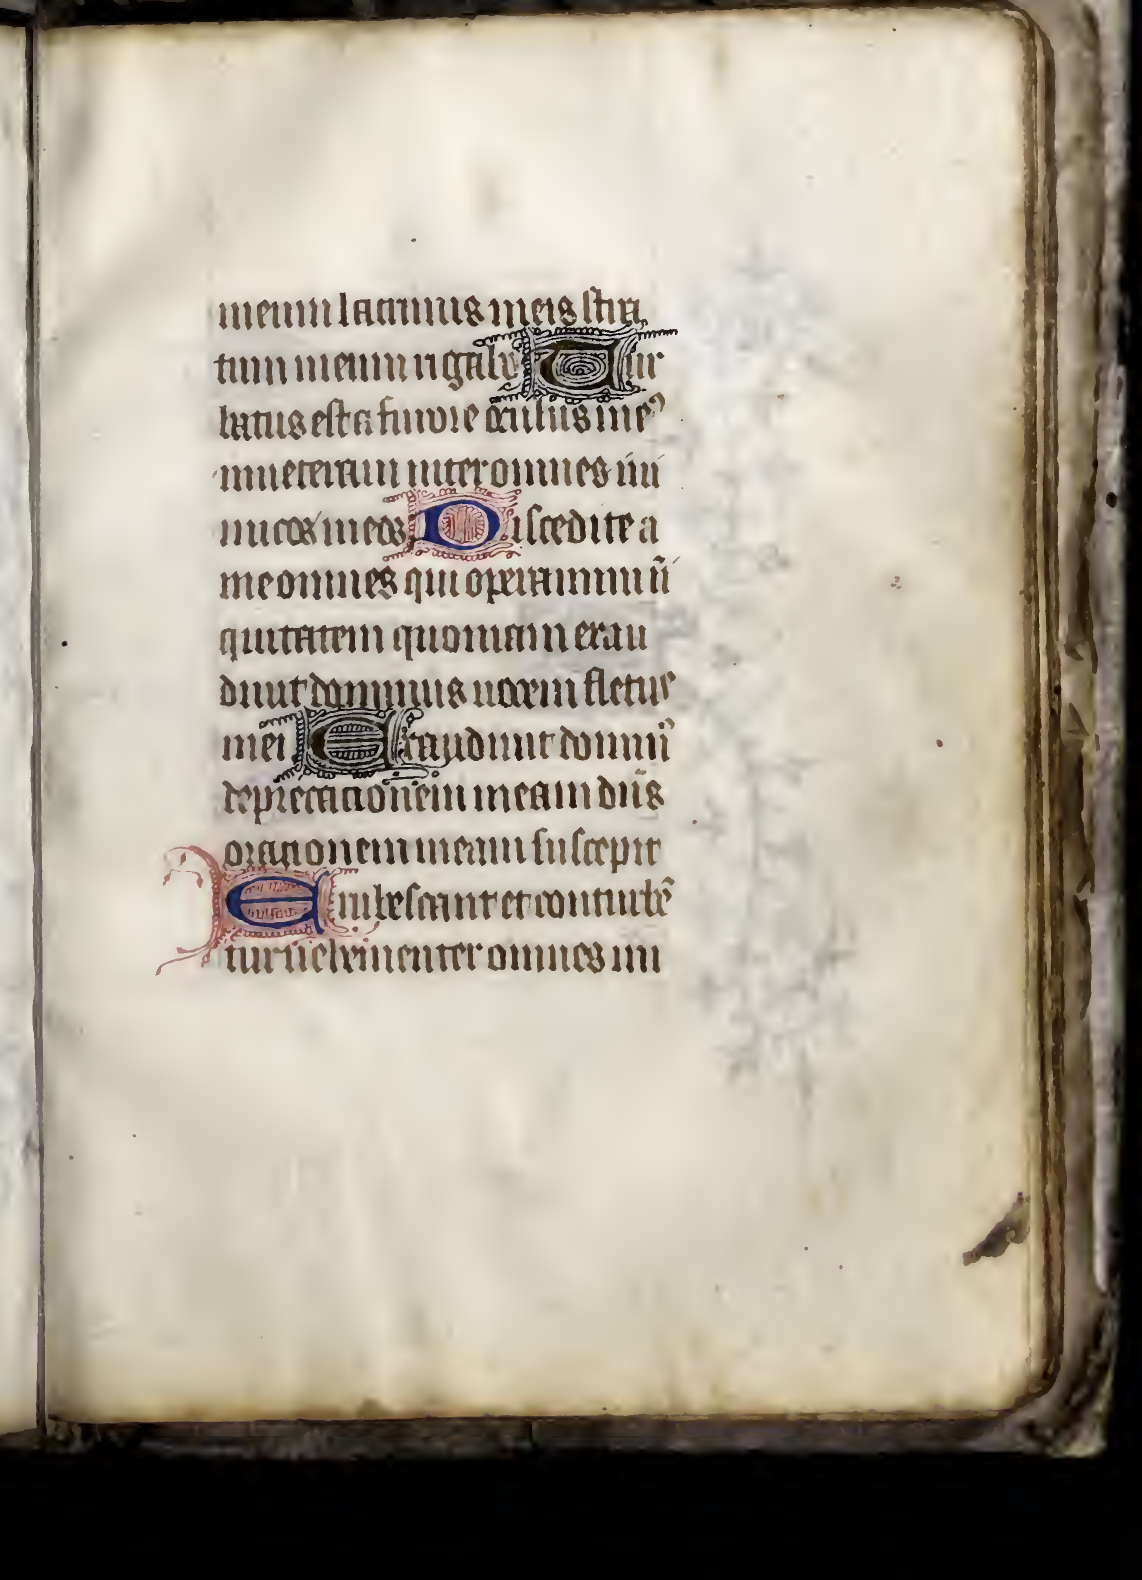 meum lacrimis meis stra
tum meum rigabo Tur
batus est a furore oculus me⁹
inueteraui inter omnes ini
micos meos Discedite a
me omnes qui operamini ī
quitatem quoniam exau
diuit dominus uocem fletus
mei Exaudiuit dominū
deprecationem meam dn̄s
orationem meam suscepit
Erubescant et conturbē
tur uehementer omnes ini